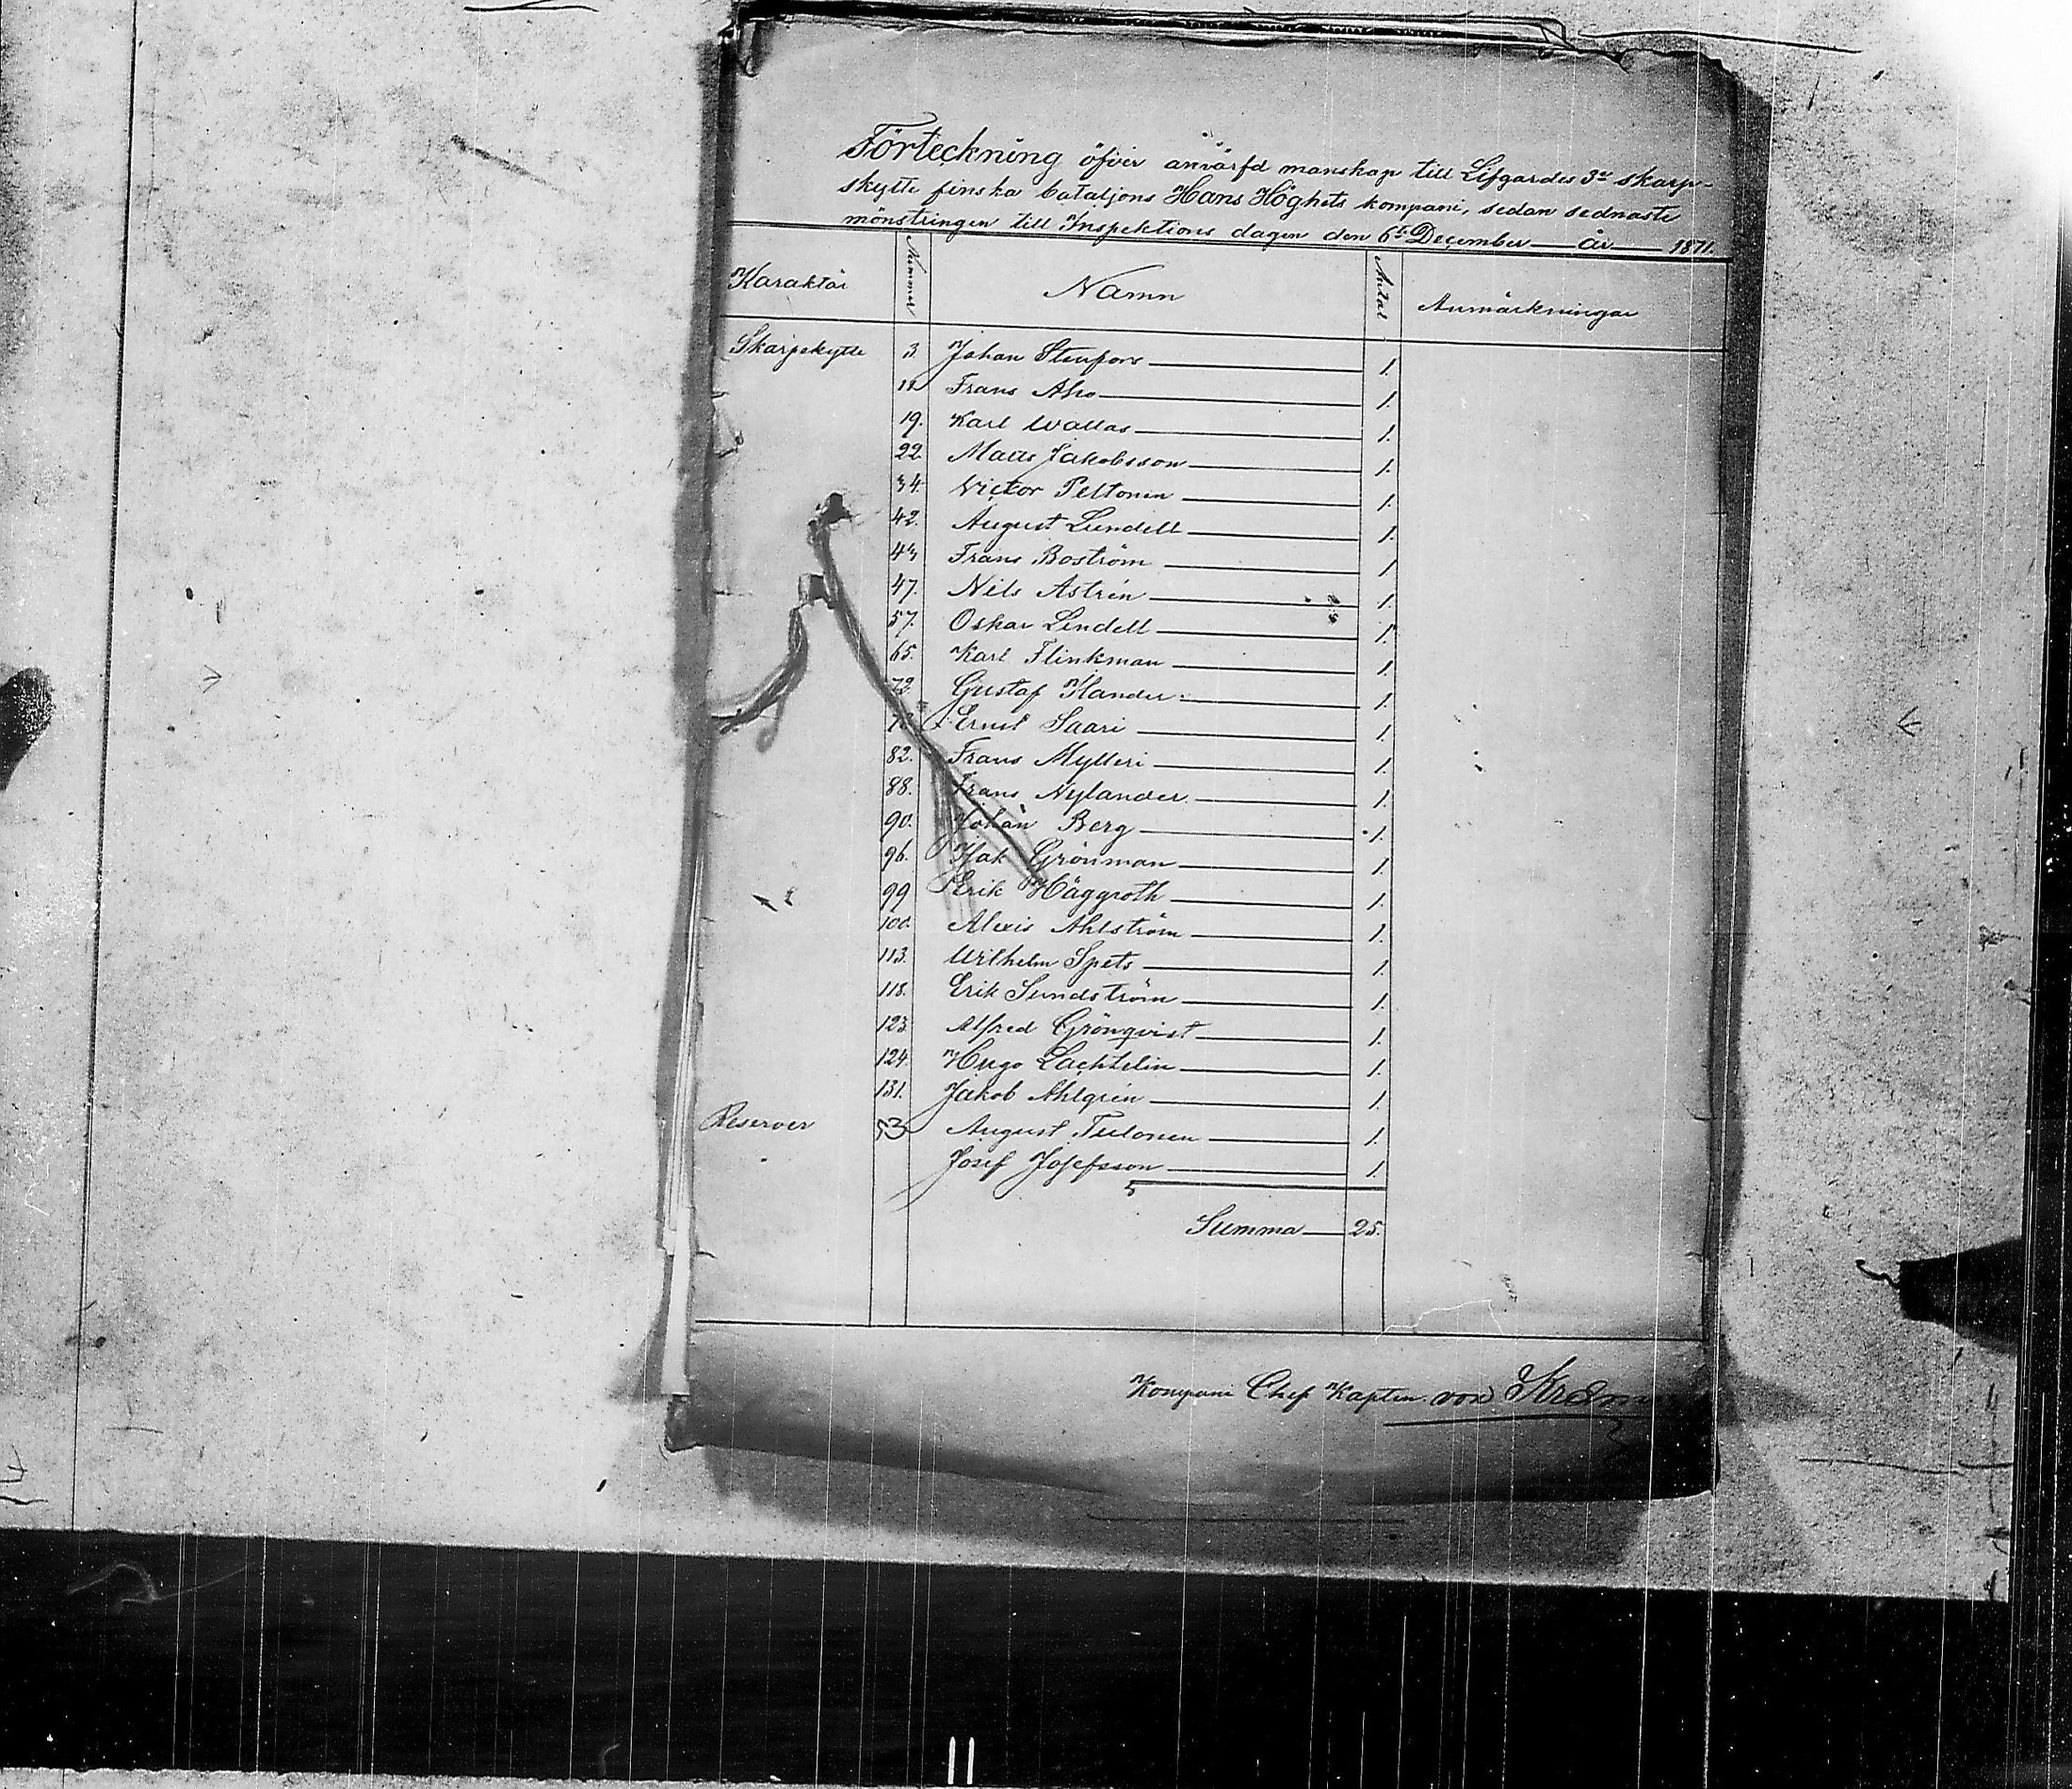 Förteckning öfver anvärfd manskap till Lifgardes 3e skarp-
skytte finska bataljons Hans Höghets kompani, sedan sednaste
mönstringen till Inspektions dagen den 6t December — år — 1871.
Karaktär Nummer Namn Antal Anmärkningar
Skarpskytte 3. Johan Stenfors 1.
11 Frans Aho 1.
19. Karl Wallas 1.
22. Matts Jakobsson 1.
34. Victor Peltonen 1.
42. August Lundell 1.
43 Frans Boström 1.
47. Nils Astrén 1.
57. Oskar Lindell 1.
65. Karl Flinkman 1.
72. Gustaf Ilander 1.
Ernst Saari 1.
82. Frans Mylleri 1.
88. Frans Nylander 1.
90. Johan Berg 1.
96. Isak Grönman 1.
99 Erik Häggroth 1.
100. Alexis Ahlström 1.
113. Wilhelm Spets 1.
118. Erik Sundström 1.
123. Alfred Grönqvist 1.
124. Hugo Lachtelin 1.
131. Jakob Ahlgrén 1.
Reserver 53 August Tulonen 1.
Josef Josefsson 1.
Summa 25.
Kompani Chef Kapten von